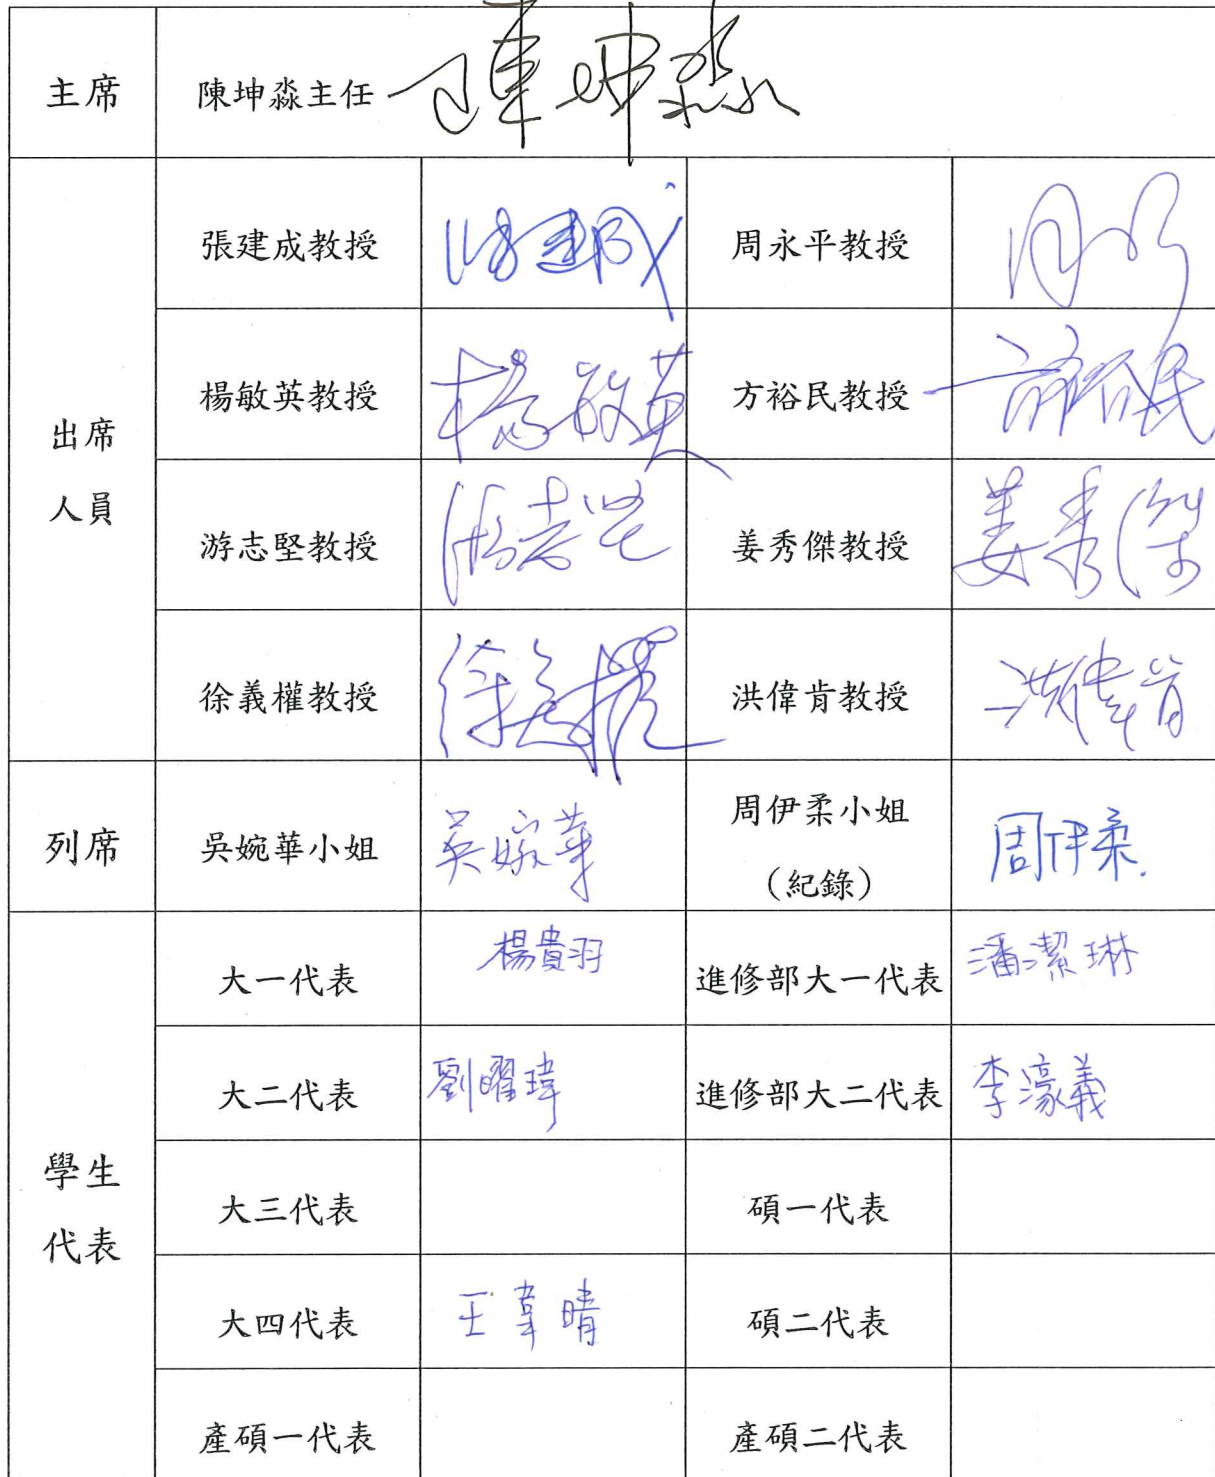 主席 陳坤淼主任 陳坤淼
出席人員
張建成教授 張建成 周永平教授
楊敏英教授 楊敏英 方裕民教授
游志堅教授 游志堅 姜秀傑教授 姜秀傑
徐義權教授 徐義權 洪偉肯教授 洪偉肯
列席 吳婉華小姐 吳婉華 周伊柔小姐 周伊柔
（紀錄）
學生代表
大一代表 楊貴羽 進修部大一代表 潘潔琳
大二代表 劉曜瑋 進修部大二代表 李濠義
大三代表 碩一代表
大四代表 王韋晴 碩二代表
產碩一代表 產碩二代表